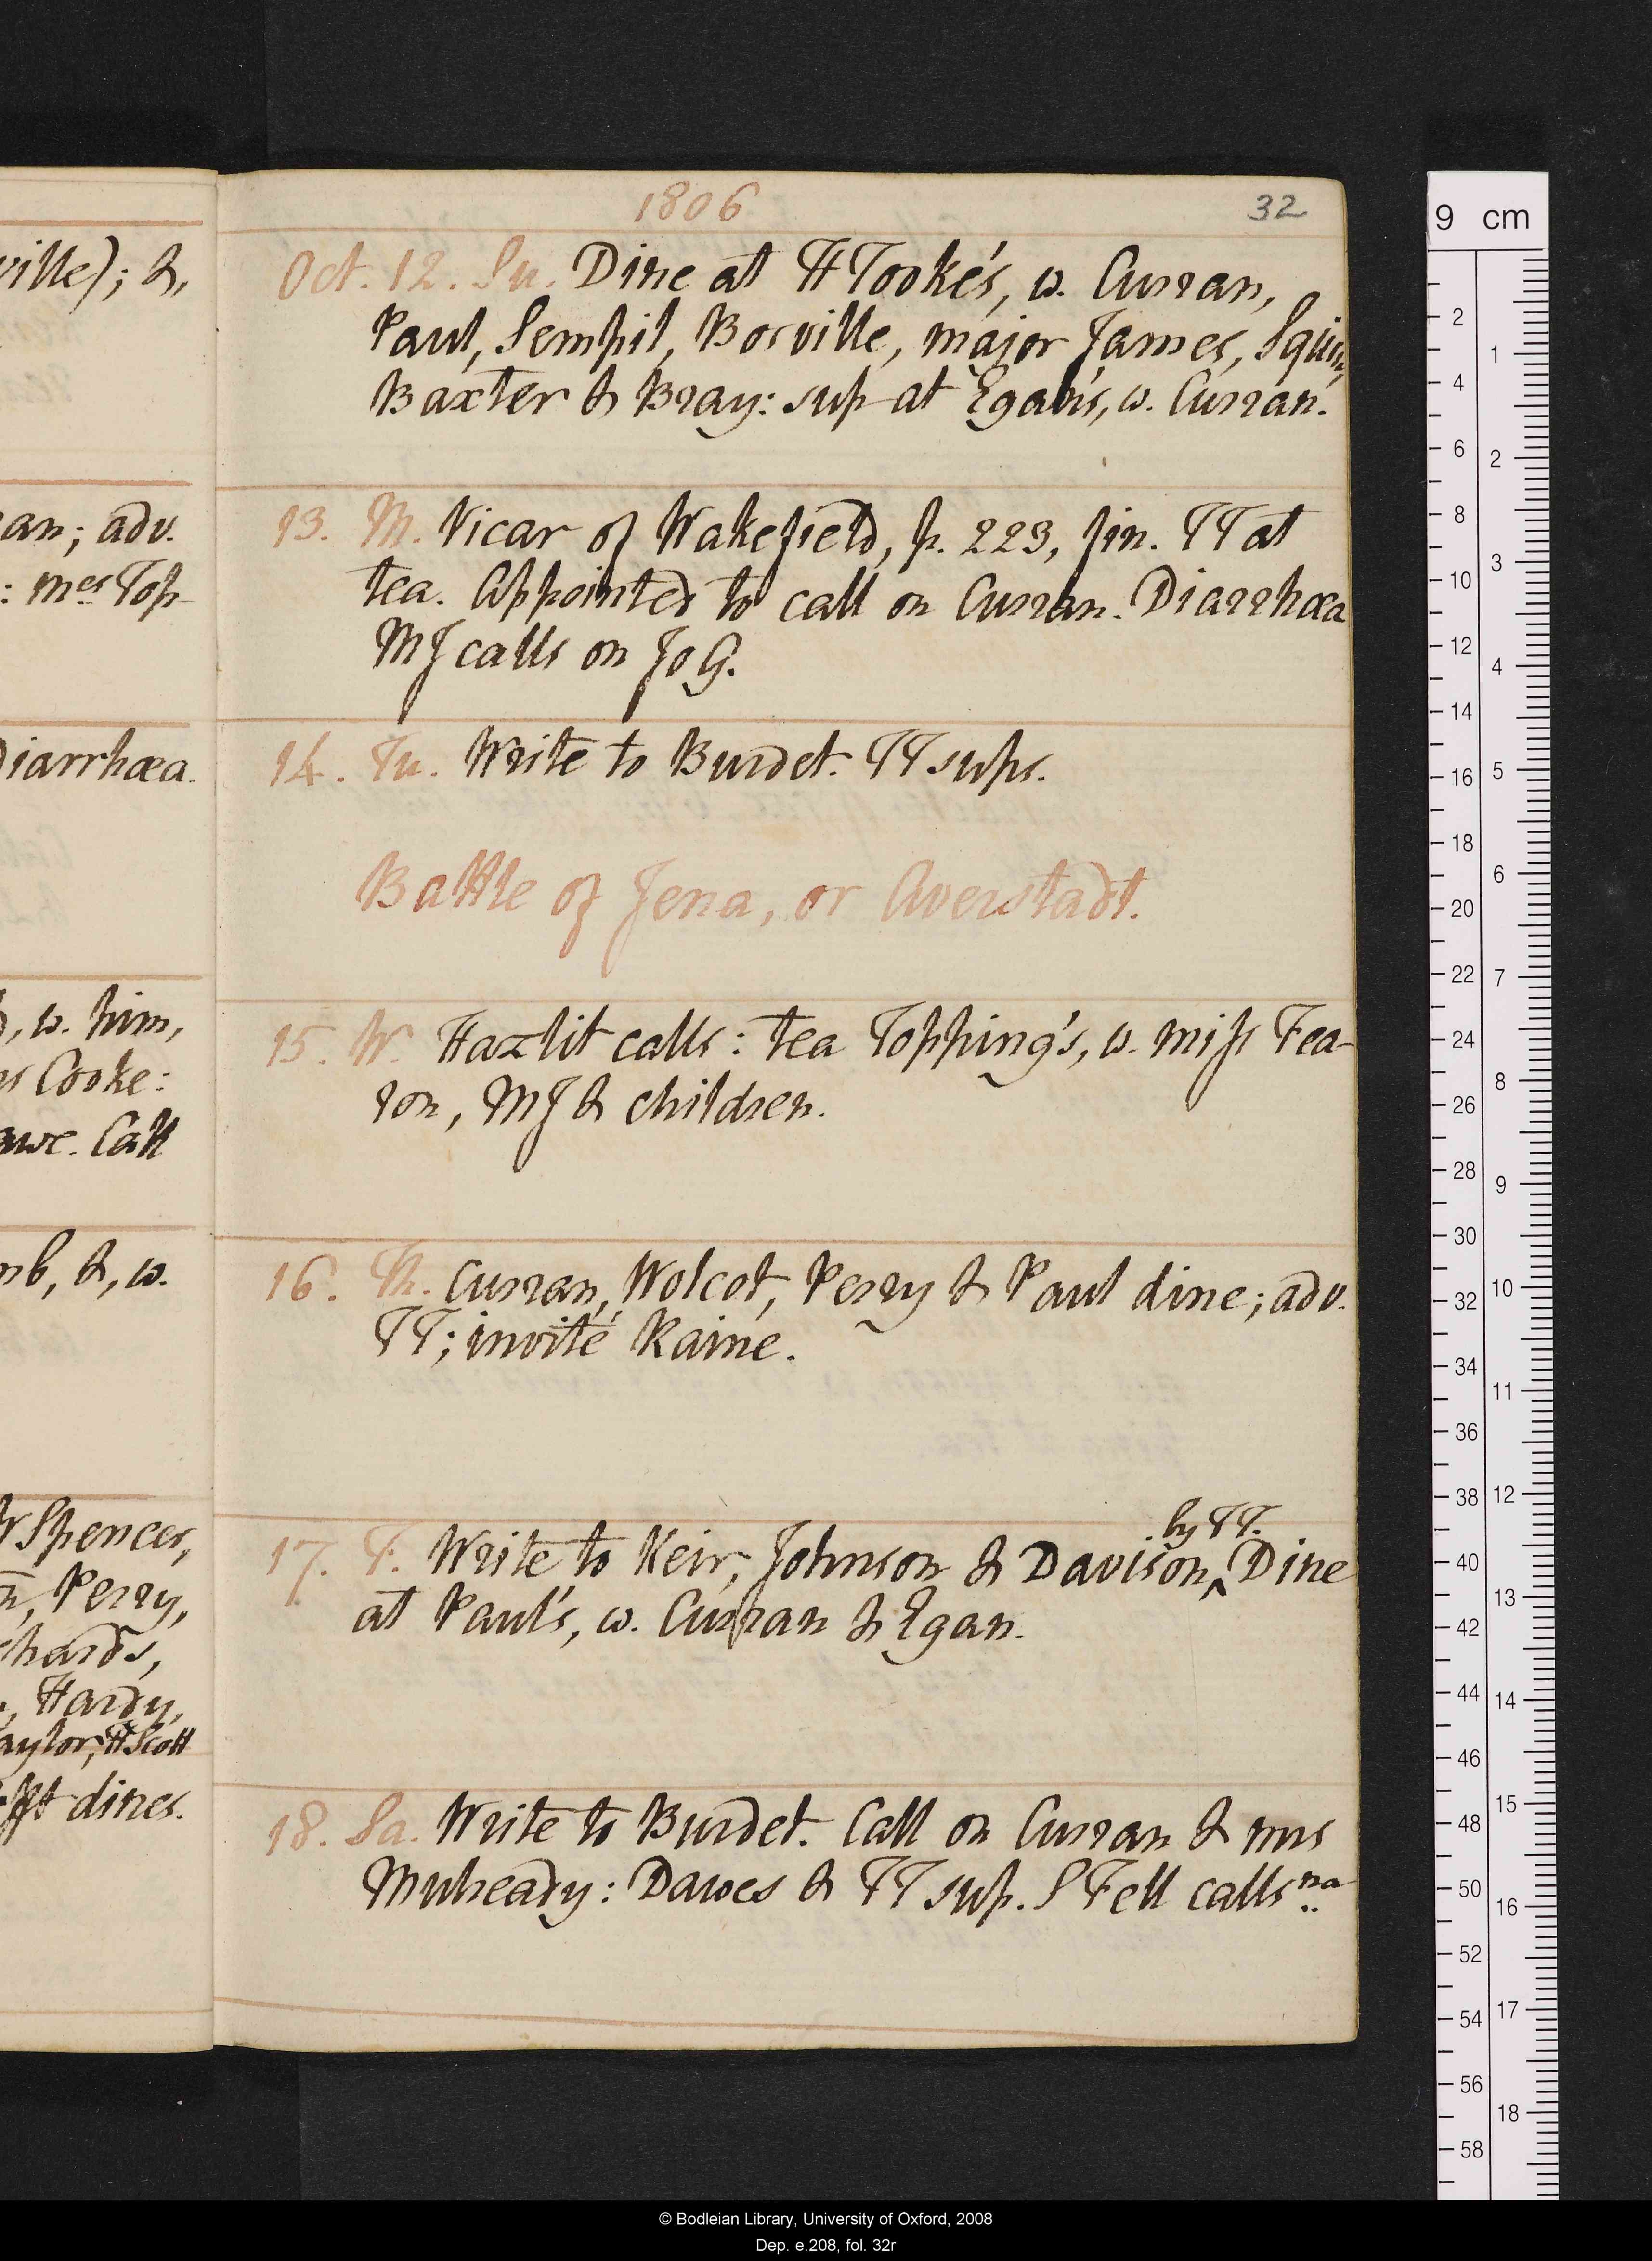 ville); &,
an; adv.
: mrs Top-
Diarrhœa.
, w. him,
Cooke:
Call
mb, &, w.
Spencer,
, Perry,
hards,
, Hardy,
aylor, H Scott
dines.
1806
32
Oct. 12. Su. Dine at HTooke's, w. Curran,
Paul, Sempil, Bosville, major James, Squire,
Baxter & Bray: sup at Egan's, w. Curran.
13. M. Vicar of Wakefield, p. 223, fin. TT at
tea. Appointed to call on Curran. Diarrhœa
MJ calls on Jo G.
14. Tu. Write to Burdet. TT sups.
Battle of Jena, or Averstadt.
15. W. Hazlit calls: tea Topping's, w. miss Fea-
ron, MJ & children.
16. Th. Curran, Wolcot, Perry & Paul dine; adv.
TT; invité Raine.
17. F. Write to Keir, Johnson & Davison, ^ by TT. Dine
at Paul's, w. Curran & Egan.
18. Sa. Write to Burdet. Call on Curran & mrs
Mulready: Dawes & TT sup. S Fell calls na
9 cm
2
4
6
8
10
12
14
16
18
20
22
24
26
28
30
32
34
36
38
40
42
44
46
48
50
52
54
56
58
1
2
3
4
5
6
7
8
9
10
11
12
13
14
15
16
17
18
© Bodleian Library, University of Oxford, 2008
Dep. e.208, fol. 32r